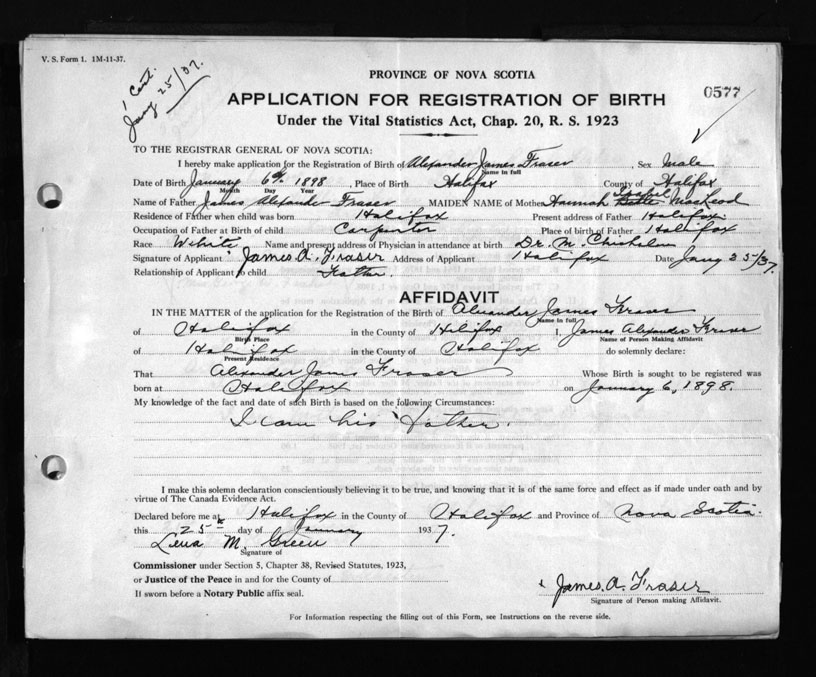 V. S. Form 1. 1M-11-37.
1 Cert.
Jany 25/37.
PROVINCE OF NOVA SCOTIA
0577
APPLICATION FOR REGISTRATION OF BIRTH
Under the Vital Statistics Act, Chap. 20, R. S. 1923
TO THE REGISTRAR GENERAL OF NOVA SCOTIA:
I hereby make application for the Registration of Birth of Alexander James Fraser, Sex Male
Name in Full
Date of Birth January 6th 1898, Place of Birth Halifax County of Halifax
Month Day Year
Isabel
Name of Father James Alexander Fraser MAIDEN NAME of Mother Hannah
Residence of Father when child was born Halifax Present address of Father Halifax.
Occupation of Father at Birth of child Carpenter Place of birth of Father Halifax
Race White Name and present address of Physician in attendance at birth Dr. M. Chisholm
Signature of Applicant James A. Fraser Address of Applicant Halifax Date Jany 25/37.
Relationship of Applicant to child Father.
AFFIDAVIT
IN THE MATTER of the application for the Registration of the Birth of Alexander James Fraser
Name in Full
of Halifax in the County of Halifax I, James Alexander Fraser
Birth Place Name of Person Making Affidavit
of Halifax in the County of Halifax do solemnly declare:
Present Residence
That Alexander James Fraser Whose Birth is sought to be registered was
born at Halifax on January 6, 1898.
My knowledge of the fact and date of such Birth is based on the following Circumstances:
I am his father.
I make this solemn declaration conscientiously believing it to be true, and knowing that it is of the same force and effect as if made under oath and by
virtue of The Canada Evidence Act.
Declared before me at Halifax in the County of Halifax and Province of Nova Scotia.
this 25th day of January 1937.
Lena M. Green
Signature of
Commissioner under Section 5, Chapter 38, Revised Statutes, 1923,
or Justice of the Peace in and for the County of
If sworn before a Notary Public affix seal.
x James. A. Fraser
Signature of Person making Affidavit.
For Information respecting the filling out of this Form, see Instructions on the reverse side.